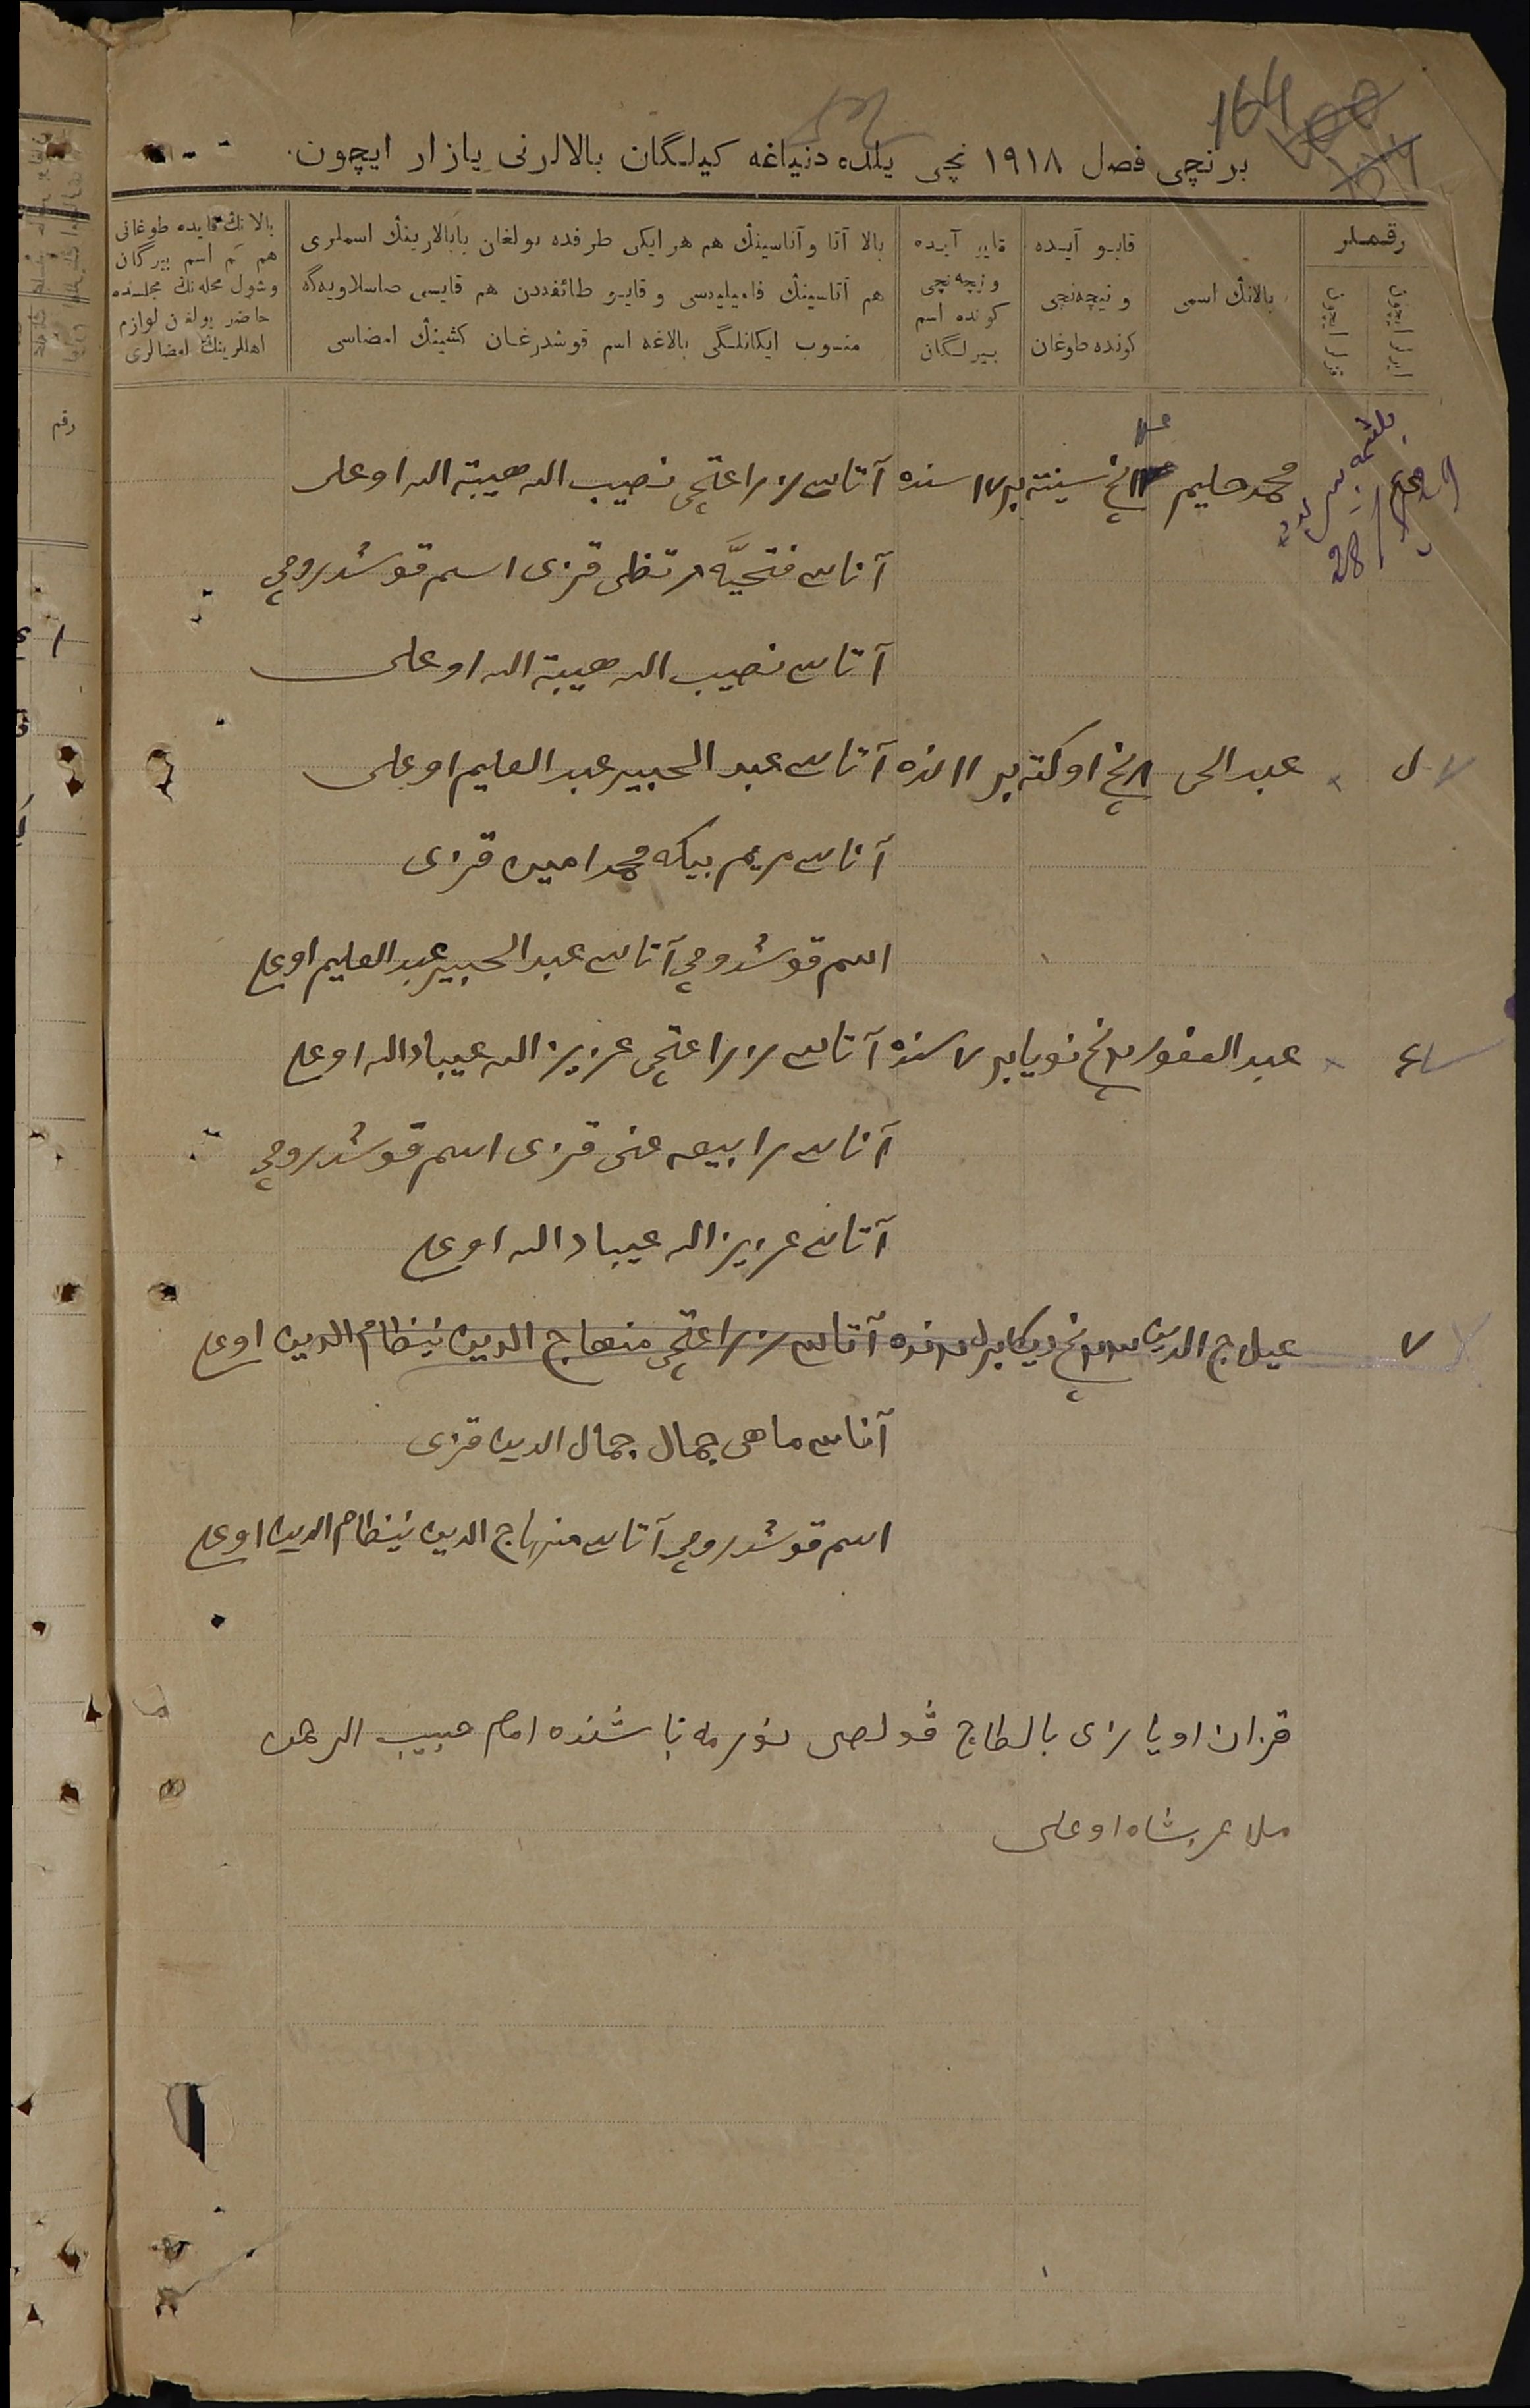 164
برنچی فصل ١٩١٨ نچی یلده دنیاغه کیلگان بالالرنی یازار ایچون.
رقملر
بالانڭ اسمی
قایو آیده و نیچه‌نچی کونده طوغان
قایو آیده و نیچه‌نچی کونده اسم بیرلگان
بالا آتا و آناسینڭ هم هر ایکی طرفده بولغان بابالارینڭ اسملری
هم آتاسینڭ فامیلیه‌سی و قایو طائفه‌دن هم قایسی صاسلاویه‌گه
منسوب ایکانلگی بالاغه اسم قوشدرغان کشینڭ امضاسی
بالانڭ قایده طوغانی
هم کم اسم بیرگان
و شول محله‌نڭ مجلسنده
حاضر بولغن لوازم
اهللرینڭ امضالری
محمد حلیم ١١نچ سینتەبر ١٧ سنده آتاسی زراعتچی نصیب الله هیبة الله اوغلی
28
آناسی فتحیَّه مرتظی قزی اسم قوشدروچی
آتاسی نصیب الله هیبة الله اوغلی
عبد الحی ٨نچ اوکتەبر ١١نده آتاسی عبد الحبیر عبد العلیم اوغلی
آناسی مریم بیکه محمد امین قزی
اسم قوشدروچی آتاسی عبد الحبیر عبد العلیم اوغلی
عبد الغفور ٣نچ نویابر ٧ سنده آتاسی زراعتچی عزیز الله عیباد الله اوغلی
آناسی رابیعه غنی قزی اسم قوشدروچی
آتاسی عزیز الله عیباد الله اوغلی
٧ عیلاج الدین نچ دیکابر نده آتاسی زراعتچی منهاج الدین نیظام الدین اوغلی
آناسی ماهی جمال جمال الدین قزی
اسم قوشدروچی آتاسی منهاج الدین نیظام الدین اوغلی
قزان اویازی بالطاچ ڤولصی نورمه باشنده امام حبیب الرحمن
ملا عربشاه اوغلی
رقم